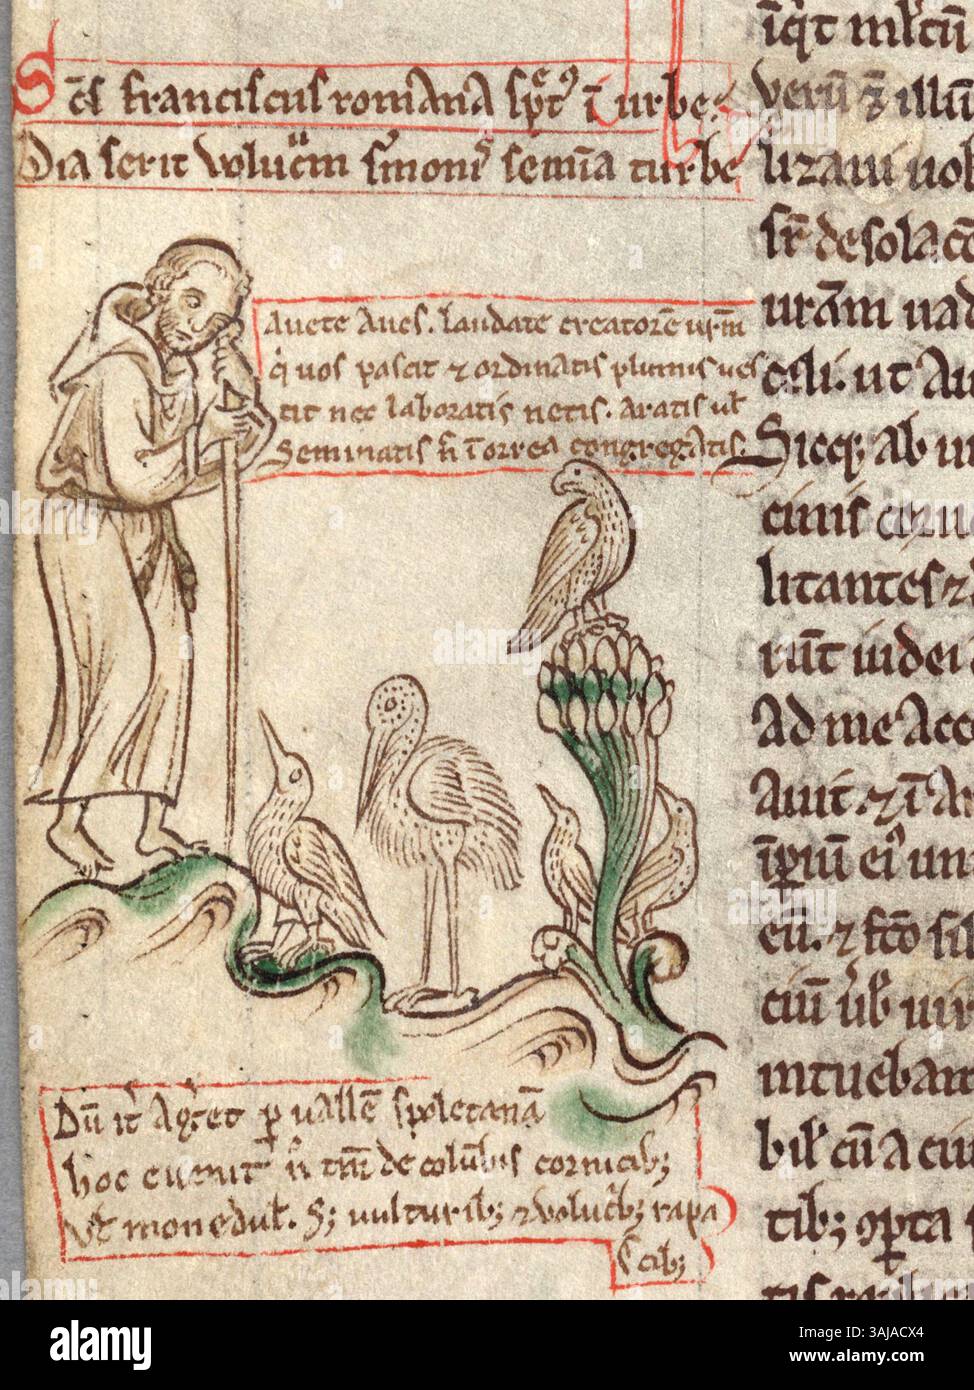 Sc̄s franciscus romana sp̄t᷒ ī urbe.
Dia serit volucrm sermonis semina turbe
Auete Aues. laudate creatorē urm̄
q̇ uos pascit ⁊ ordinatis plumis ues
tit nec laboratis netis. Aratis ul̄
Seminatis n̄ ī orrea congregatis.
Dū iť Aǵet ꝑ uallē spoletanā
hoc euenit n̄ tm̄ de colūbis cornicib;
ul̄ monedul̄. S; uulturib; ⁊ uolucb; rapa
Ccib;
īq̇t
uerū ⁊ illū
lizaui uob
sr̄ desolac̄
urām uad
celi. ut Au
Sicq; ab
cinis
litantes ⁊
rūt iudei
Ad me Acc
Auit ⁊ ī
īpiū ei᷒ un
eū. ⁊ fc̄o si
ciū ur̄b uir
intuebant
bil̄ cū a ciu
tib; ꝯpta
alamy
Image ID: 3AJACX4
www.alamy.com